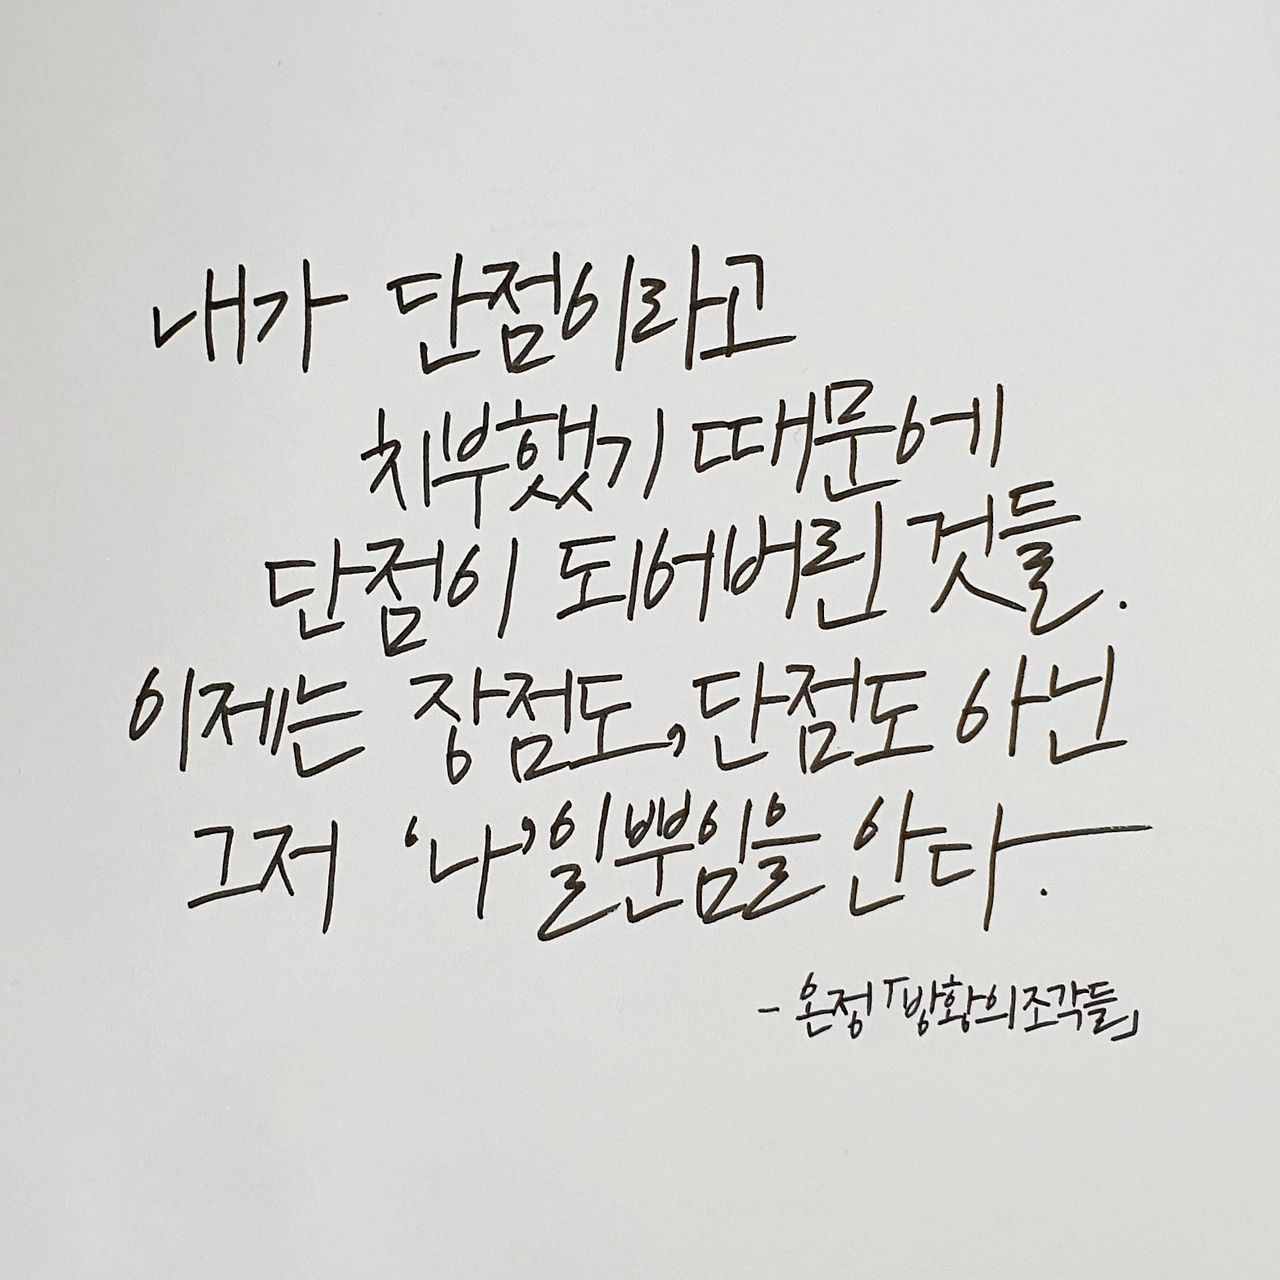 내가 단점이라고
치부했기 때문에
단점이 되어버린 것들.
이제는 장점도, 단점도 아닌
그저 '나'일뿐임을 안다.
- 온정 「방황의조각들」